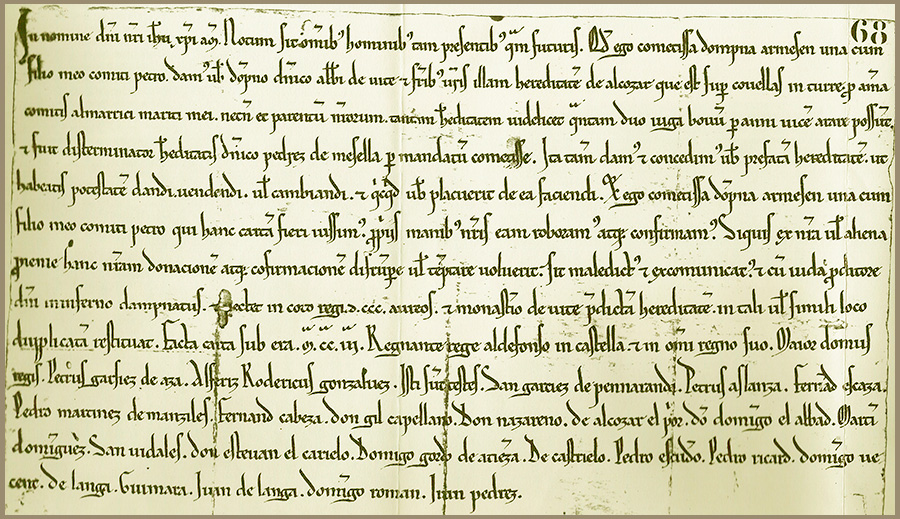 68
In nomine dñi nri ihu xpi am. Notum sit omib' hominib' tam presentib' qm futuris. Qd ego cometissa dompna armesen una cum
filio meo comiti petro. dam' ub' dopno dnico abbi de uite ⁊ frib' uris illam hereditatē de alcozar que est sup couellas in turre. p ama
comitis almarrici mariti mei. necñ et parentū meorum. tantam heditatem uidelicet qntam duo iuga bouū p anni uicē arare possūt.
⁊ fuit disterminator heditatis dnico pedrez de mesella p mandatū comitisse. Ita tam dam' ⁊ concedim' ub' prefatā hereditatē. ut
habeatis potestatē dandi. uendendi. ul cambiandi. ⁊ qcqd ub' placuerit de ea faciendi. Et ego cometissa dopna armesen una cum
filio meo comiti petro qui hanc cartā fieri iussim' ppiis manib' nris eam roboram' atq confirmam'. Siquis ex nra ul aliena
pienie hanc nram donacionē atq cofirmacionē disrupe ul teptare uoluerit. sit maledict' ⁊ excomunicat' ⁊ cū iuda pditore
dñi in inferno dampnatus. ⁊ pectet in coto regi. d. ccc. aureos. ⁊ monastio de uite pdictā hereditatē. in tali ul simili loco
dupplicatā restituat. Facta carta sub era. m. cc. iii. Regnante rege aldefonso in castella ⁊ in omi regno suo. Maior domus
regis. Petrus garsiez de aza. Alferiz Rodericus gonzaluez. Isti sūt testes. San garciez de pennaranda. Petrus aslanza. Ferrād escaza.
Pedro martinez de manziles. Fernand cabeza. don gil capellano. Don nazareno. de alcozar el por. dō domigo el abbad. Marti
domiguez. San uidales. don esteuan el carielo. Domigo gordo de arieza. De castrielo. Pedro escudo. Pedro ricard. domigo ue
cent. de langa. Guimara. Juan de langa. domigo roman. Juan pedrez.